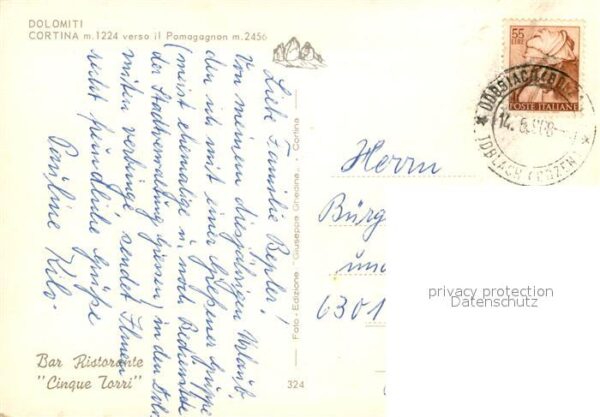 DOLOMITI
CORTINA m.1224 verso il Pomagagnon m.2456
Liebe Familie Bepler!
Von meinem diesjährigen Urlaub,
den ich mit einer Gießener Gruppe
(meist ehemalige u. noch Bedienstete
der Stadtverwaltung Giessen) in den Dolo
miten verbringe sendet Ihnen
recht freundliche Grüße
Pauline Kilo.
Bar Ristorante
"Cinque Torri"
Foto - Edizione - Giuseppe Ghedina - Cortina
324
55
LIRE
POSTE ITALIANE
DOBBIACO (BOLZANO)
14. 6.
TOBLACH (BOZEN)
Herrn
Bürg
und
6301
privacy protection
Datenschutz